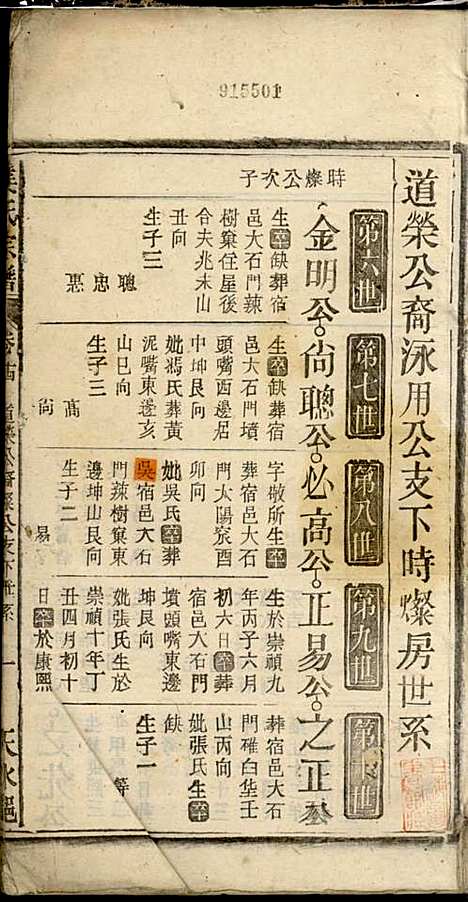 915501
道榮公裔泳用公支下時燦房世系
第六世
第七世
第八世
第九世
金明公
尙聰公
必高公
正易公
之正公
時燦公次子
生卒缺葬宿
邑大石門辣
樹窠住屋後
合夫兆未山
丑向
生子三
聰
忠
惠
生卒缺葬宿
邑大石門墳
頭嘴西邊居
中坤艮向
妣馮氏葬黄
泥嘴東邊亥
山巳向
生子三
高
尙
字敬所生卒
葬宿邑大石
門太陽寮酉
卯向
妣吳氏卒葬
吳宿邑大石
門辣樹窠東
邊坤山艮向
生子二
易
生於崇禎九
年丙子六月
初六日卒葬
宿邑大石門
墳頭嘴東邊
坤艮向
妣張氏生於
崇禎十年丁
丑四月初十
日卒於康熙
葬宿邑大石
門碓白垡壬
山丙向
妣張氏生卒
缺
生子一
等